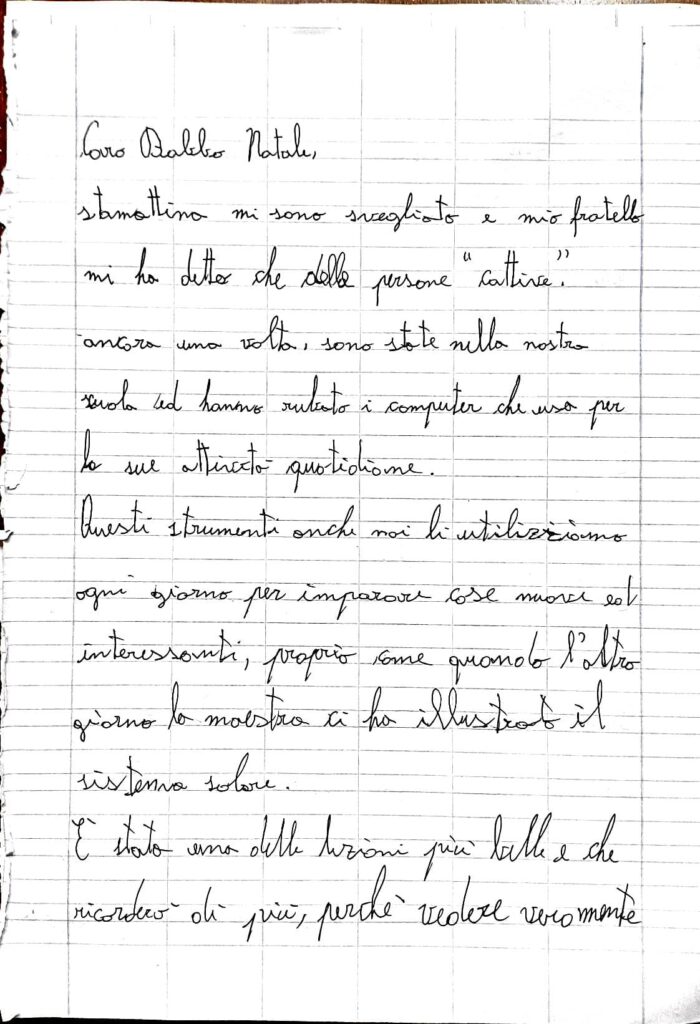 Caro Babbo Natale,
stamattina mi sono svegliato e mio fratello
mi ha detto che delle persone "cattive".
ancora una volta, sono state nella nostra
scuola ed hanno rubato i computer che usa per
le sue attività quotidiane.
Questi strumenti anche noi li utilizziamo
ogni giorno per imparare cose nuove ed
interessanti, proprio come quando l'altro
giorno la maestra ci ha illustrato il
sistema solare.
È stato una delle lezioni più belle e che
ricorderò di più, perchè vedere veramente